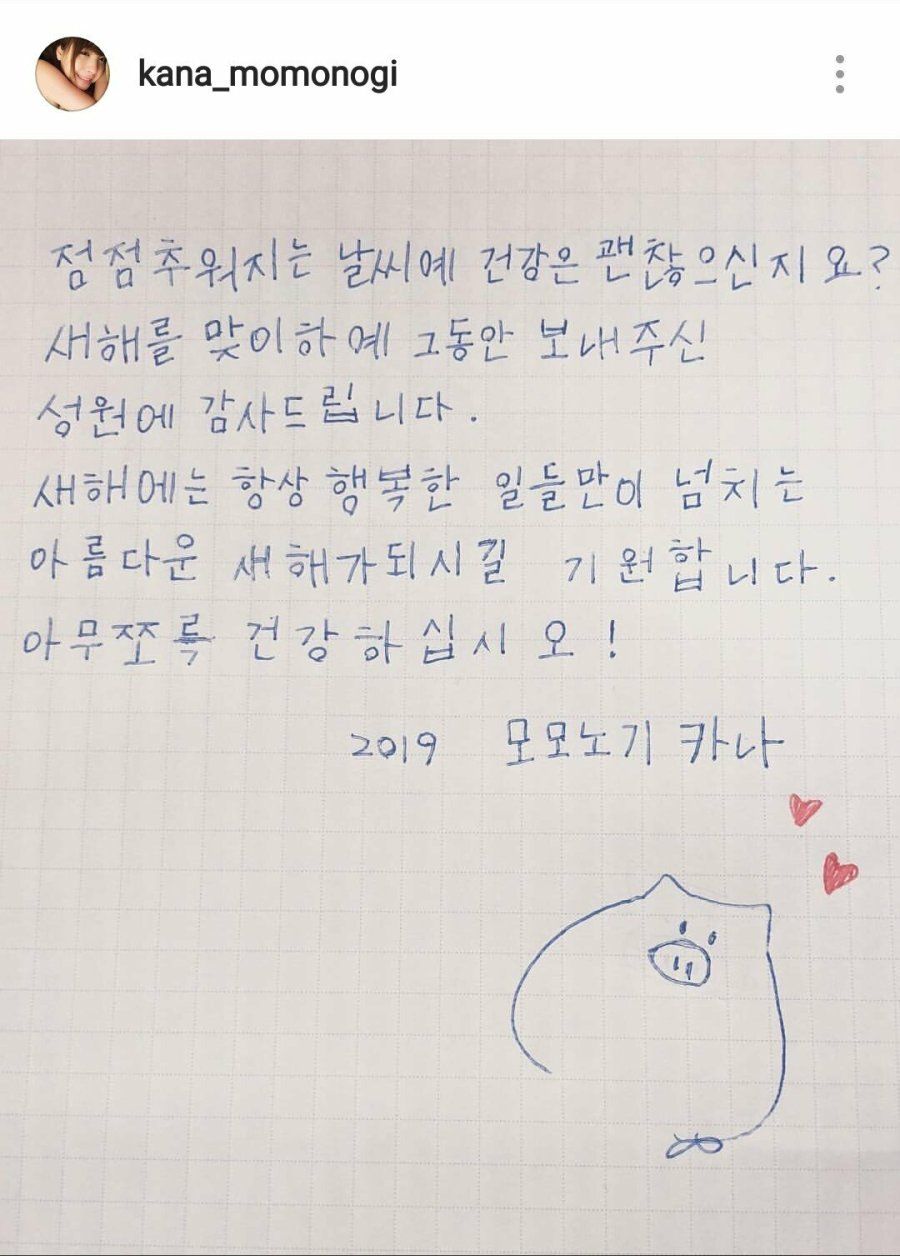 kana_momonogi
점점추워지는 날씨예 건강은 괜찮으신지요?
새해를 맞이하예 그동안 보내주신
성원에 감사드립니다.
새해에는 항상 행복한 일들만이 넘치는
아름다운 새해가되시길 기원합니다.
아무쪼록 건강하십시오!
2019 모모노기 카나